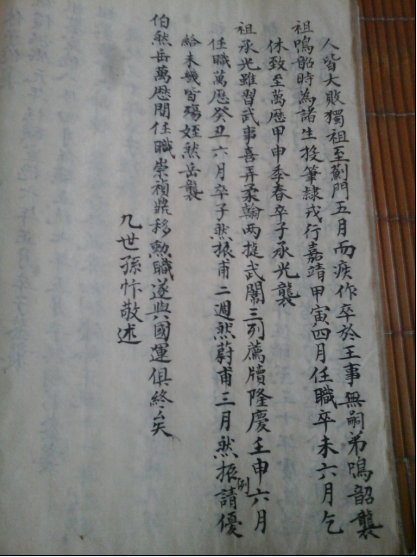 人皆大敗獨祖至薊門五月而疾作卒於王事無嗣弟鳴韶襲
祖鳴韶時為諸生投筆隸戎行嘉靖甲寅四月任職卒未六月乞
休致至萬曆甲申季春卒子承光襲
祖承光雖習武事喜弄柔翰兩捷武闈三列薦牘隆慶壬申六月
任職萬歷癸丑六月卒子烝振甫二週烝蔚甫三月烝振請優
例
給未幾皆殤姪烝岳襲
伯烝岳萬歷間任職崇禎鼎移勲職遂與國運俱終矣
九世孫忭敬述